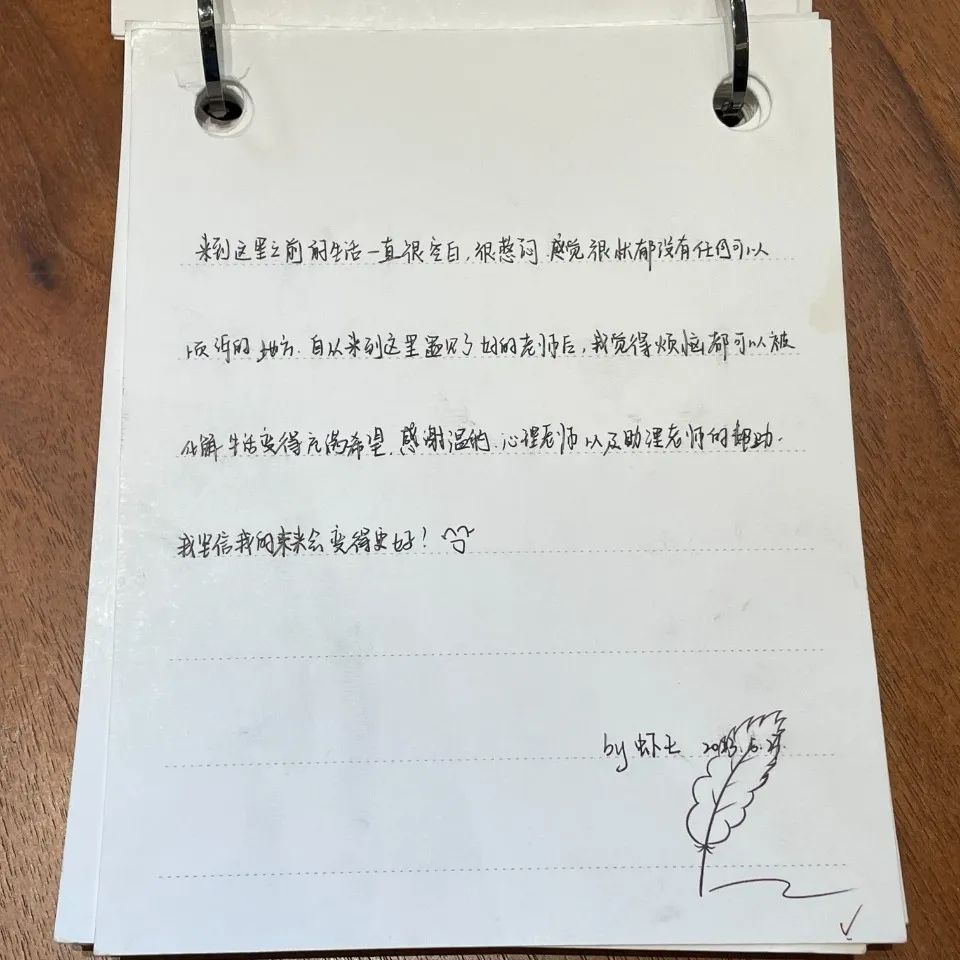 来到这里之前的生活一直很空白,很愁闷.感觉很忧郁没有任何可以
倾诉的地方.自从来到这里遇见了好的老师后,我觉得烦恼都可以被
化解.生活变得充满希望.感谢温的.心理老师以及助理老师的帮助.
我坚信我的未来会变得更好!
by 虾七 2023.6.